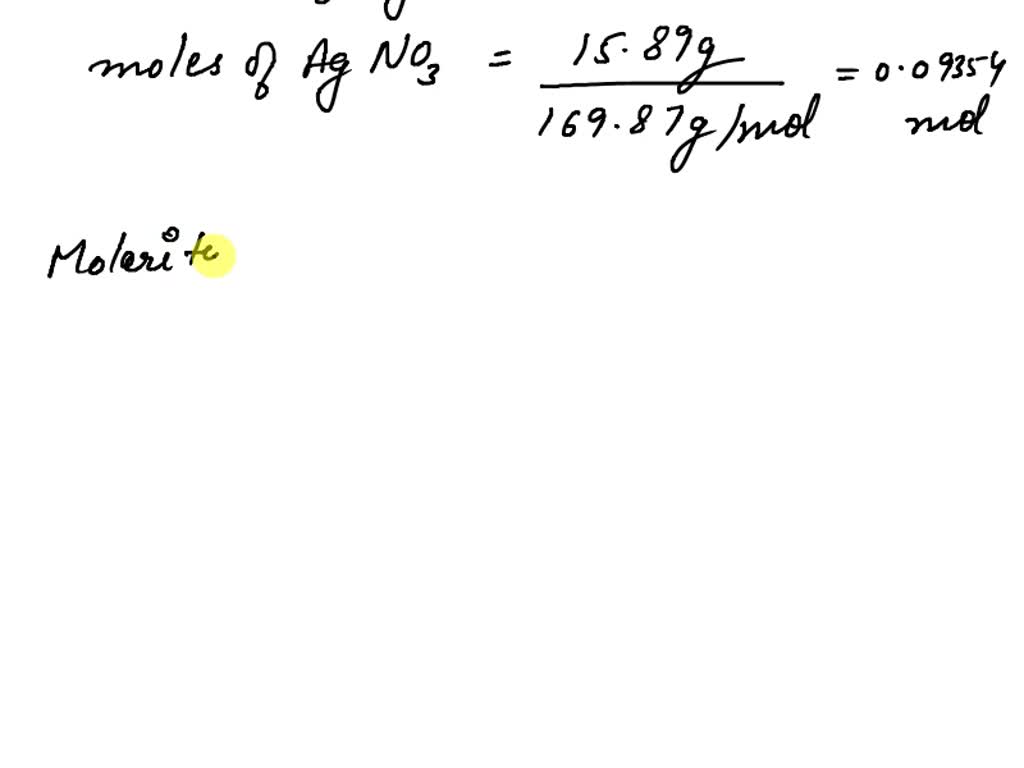 moles of AgNO3 = 15.89g / 169.87g/mol = 0.09354 mol
Molarit